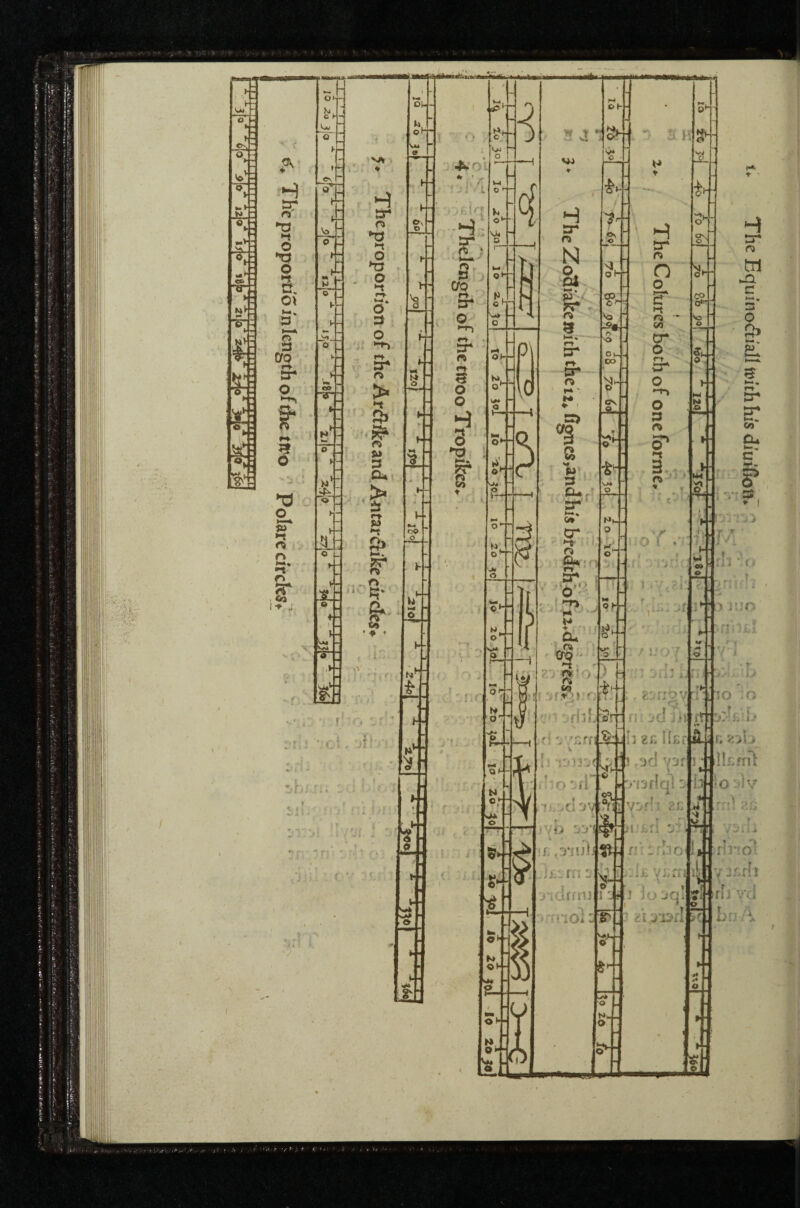 1. The Equinoctiall with his diuision.
10 20 30 40 50 60 70 80 90 120 150 180 210 300 360
2. The Colures both of one forme.
10 20 30 40 50 60 70 80 90 90 80 70 60 50 40 30 20 10 10 20 30 40
3. The Zodiake with the 12. signes, and his breadth of 12. degrees.
♈ ♉ ♊ ♋ ♌ ♍ ♎ ♏ ♐ ♑ ♒ ♓
10 20 30 10 20 30 10 20 30 10 20 30 10 20 30 10 20 30 10 20 30 10 20 30 10 20 30 10 20 30 10 20 30 10 20 30
4. The length of the twoo Tropikes.
10 20 30 60 90 120 150 180 210 240 270 300 330 360
5. The proportion of the Arctike and Antarctike circles.
10 20 30 60 90 120 150 180 210 240 270 300 330 360
6. The proportion in length of the two Polare circles.
30 60 90 120 150 180 210 240 270 300 330 360